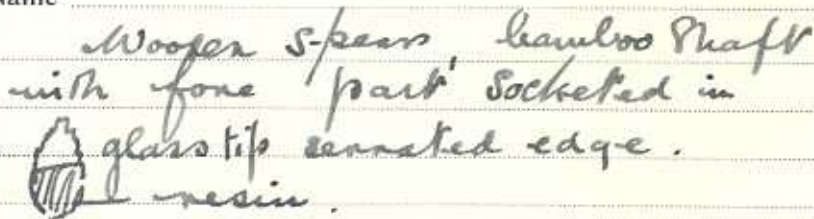 Name
Wooden spear, bamboo shaft
with fore part socketed in
glass tip serrated edge.
resin.